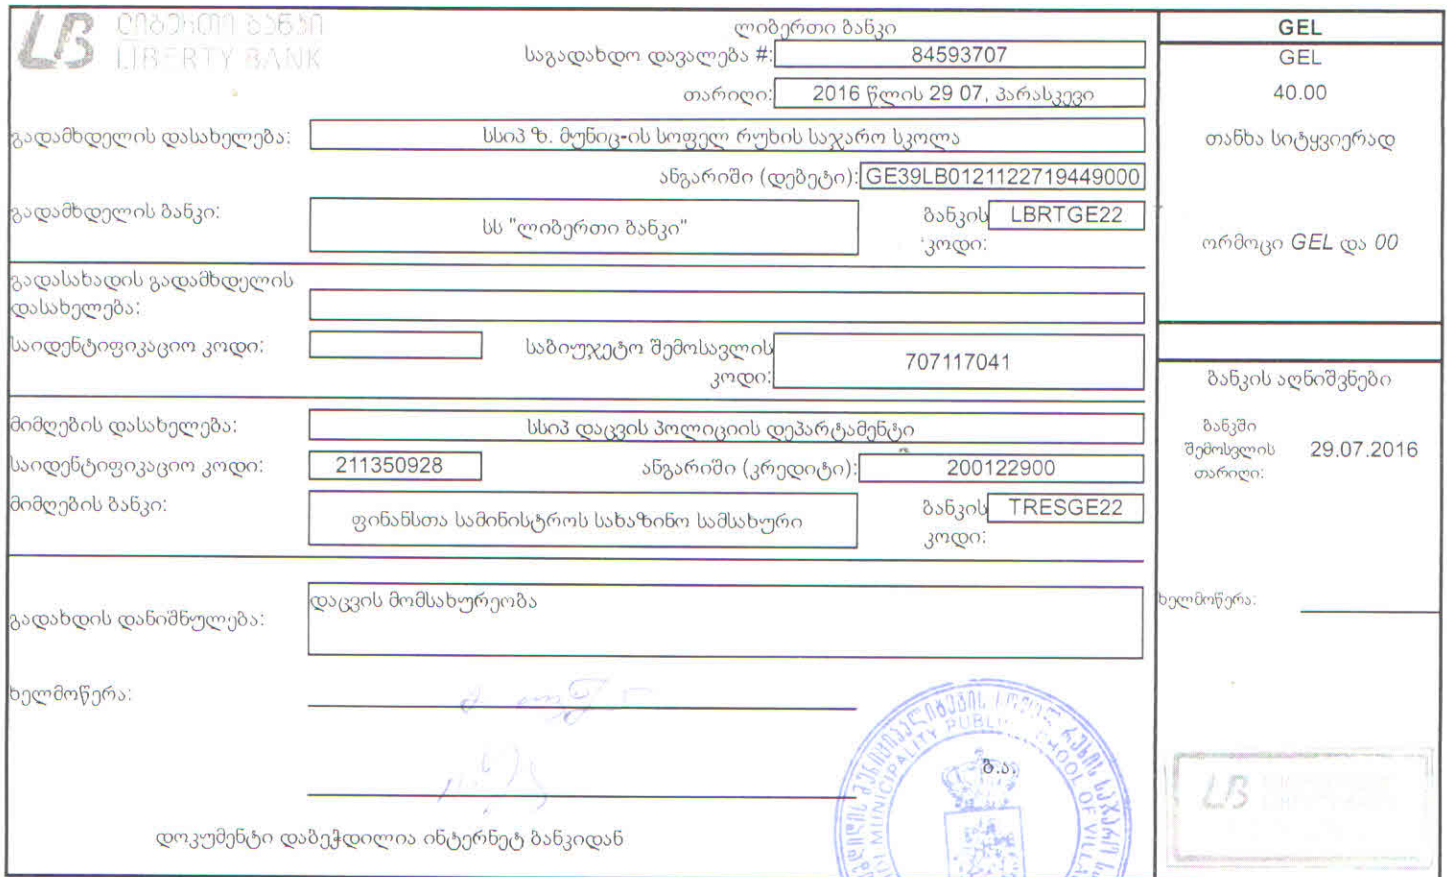 LB ლიბერთი ბანკი
LIBERTY BANK
ლიბერთი ბანკი
საგადახდო დავალება #: 84593707
თარიღი: 2016 წლის 29 07, პარასკევი
გადამხდელის დასახელება: სსიპ ზ. მუნიც-ის სოფელ რუხის საჯარო სკოლა
ანგარიში (დებეტი): GE39LB0121122719449000
გადამხდელის ბანკი: სს "ლიბერთი ბანკი" ბანკის კოდი: LBRTGE22
გადასახადის გადამხდელის
დასახელება:
საიდენტიფიკაციო კოდი: საბიუჯეტო შემოსავლის კოდი: 707117041
მიმღების დასახელება: სსიპ დაცვის პოლიციის დეპარტამენტი
საიდენტიფიკაციო კოდი: 211350928 ანგარიში (კრედიტი): 200122900
მიმღების ბანკი: ფინანსთა სამინისტროს სახაზინო სამსახური ბანკის კოდი: TRESGE22
გადახდის დანიშნულება: დაცვის მომსახურეობა
ხელმოწერა:
ბ.ა.
დოკუმენტი დაბეჭდილია ინტერნეტ ბანკიდან
GEL
GEL
40.00
თანხა სიტყვიერად
ორმოცი GEL და 00
ბანკის აღნიშვნები
ბანკში
შემოსვლის 29.07.2016
თარიღი:
ხელმოწერა:
LB
მუნიციპალიტეტის სოფელ რუხის საჯარო
MUNICIPALITY PUBLIC SCHOOL OF